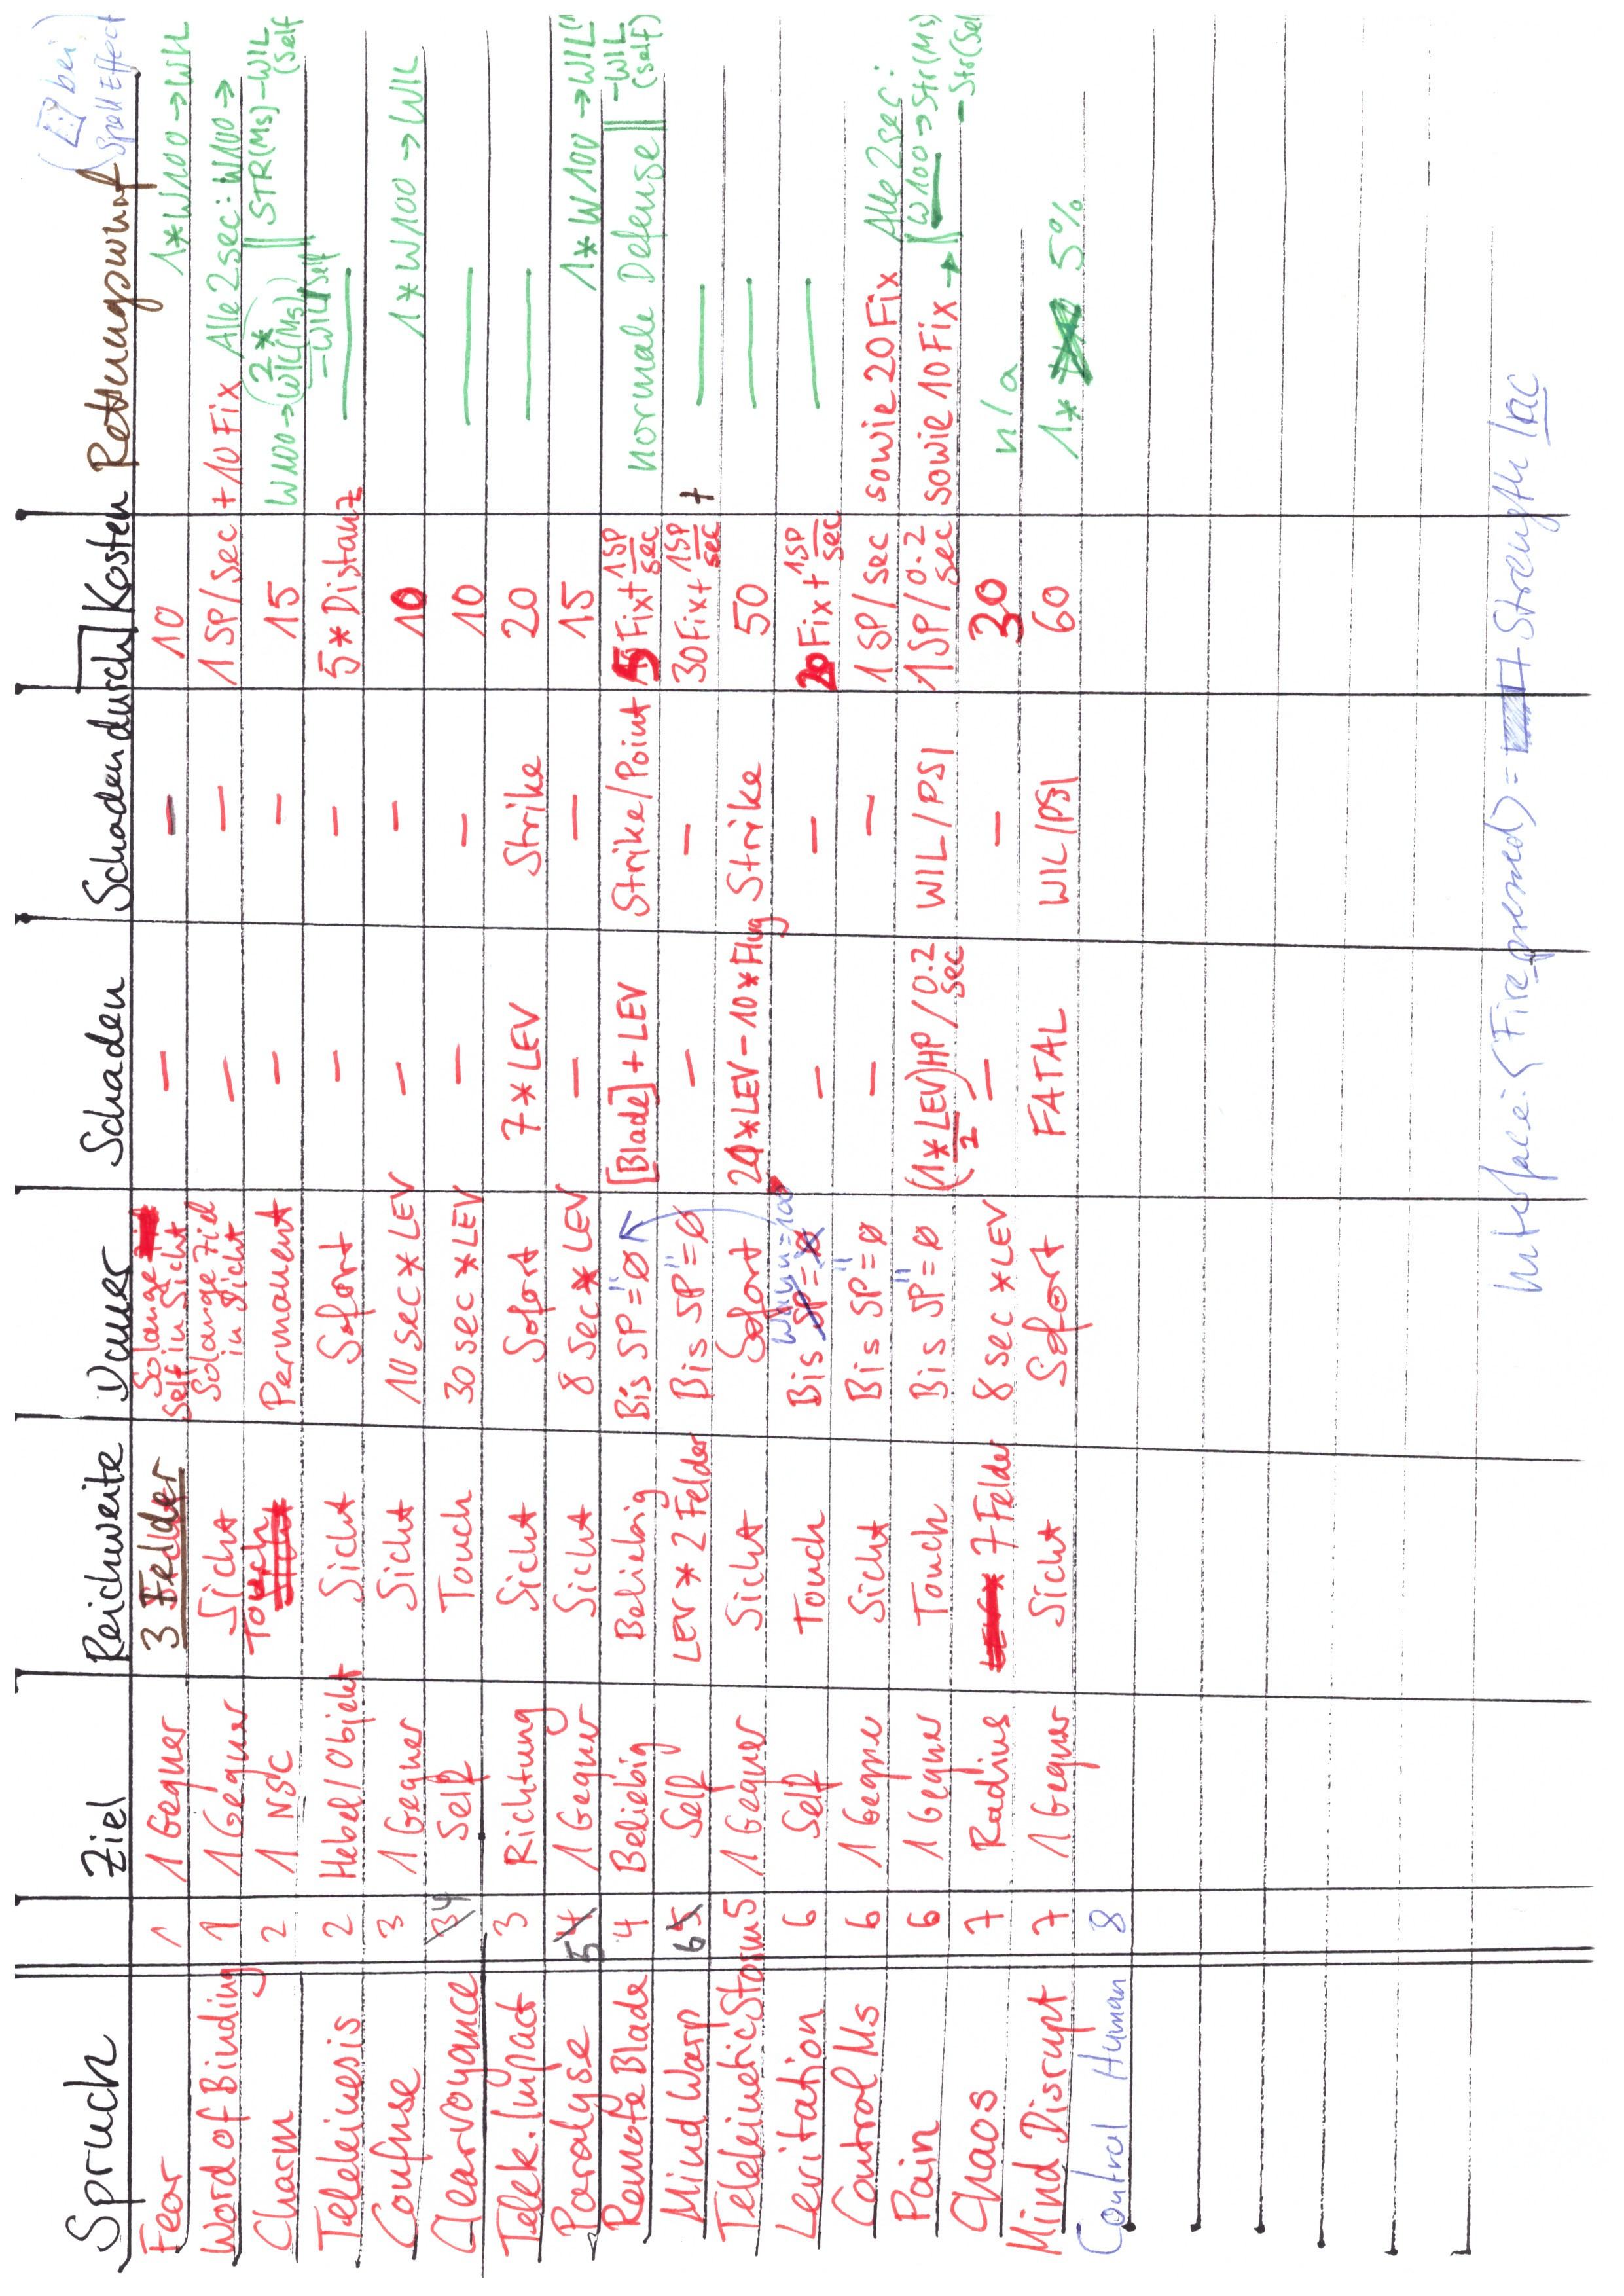 Spruch Ziel Reichweite Dauer Schaden Schaden durch Kosten Rettungswurf ( bei Spell Effect
Fear 1 1 Gegner 3 Felder Solange Self in Sicht — — 10 1*W100→WIL
Word of Binding 1 1 Gegner Sicht Solange Ziel in Sicht — — 1SP/sec + 10Fix Alle 2sec: W100→ STR(Ms)-WIL (Self
Charm 2 1 NSC Touch Permanent — — 15 W100→(2*WIL(Ms)) -WIL/Self
Telekinesis 2 Hebel/Objekt Sicht Sofort — — 5*Distanz —
Confuse 3 1 Gegner Sicht 10sec*LEV — — 10 1*W100→WIL
Clearvoyance 4 Self Touch 30sec*LEV — — 10 —
Telek. Impact 3 Richtung Sicht Sofort 7*LEV Strike 20 —
Paralyse 5 1 Gegner Sicht 8 sec*LEV — — 15 1*W100→WIL
Remote Blade 4 Beliebig Beliebig Bis SP"=Ø [Blade]+LEV Strike/Point 5Fix+1SP/sec normale Defense -WIL (Self)
Mind Warp 6 Self LEV*2Felder Bis SP"=Ø — — 30Fix+1SP/sec + —
TelekineticStorm 5 1 Gegner Sicht Sofort 20*LEV-10*Flug Strike 50 —
Levitation 6 Self Touch Bis — — 20Fix+1SP/sec —
Control Ms 6 1 Gegner Sicht Bis SP"=Ø — — 1SP/sec sowie 20Fix Alle 2sec:
Pain 6 1 Gegner Touch Bis SP"=Ø (1*LEV/2)HP/0.2 sec WIL/PSI 1SP/0.2 sec sowie 10Fix → W100→Str(Ms) -Str(Sel
Chaos 7 Radius 7Felder 8 sec*LEV — — 30 n/a
Mind Disrupt 7 1 Gegner Sicht Sofort FATAL WIL/PSI 60 1* 5%
Control Human 8
Interface: (Fire pressed) = Strength inc